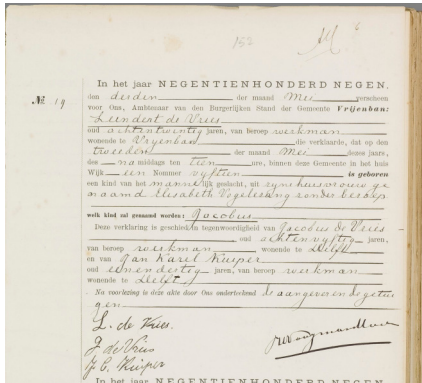 152
In het jaar NEGENTIENHONDERD NEGEN,
No. 19
den derden der maand Mei verscheen
voor Ons, Ambtenaar van den Burgerlijken Stand der Gemeente Vrijenban:
Leendert de Vries
oud achtentwintig jaren, van beroep werkman
wonende te Vrijenban, die verklaarde, dat op den
tweeden der maand Mei dezes jaars,
des namiddags ten tien ure, binnen deze Gemeente in het huis
Wijk een Nommer vyftien is geboren
een kind van het mannelijk geslacht, uit zyne huisvrouw ge
naamd Elisabeth Vogelezang zonder beroep
welk kind zal genaamd worden: Jacobus
Deze verklaring is geschied in tegenwoordigheid van Jacobus de Vries
oud achtenvyftig jaren,
van beroep werkman wonende te Delft
en van Jan Karel Kuiper
oud eenendertig jaren, van beroep werkman
wonende te Delft
Na voorlezing is deze akte door Ons onderteekend de aangever en de getui
gen
L. de Vries.
J de Vries
J C. Kuiper
In het jaar NEGENTIENHONDERD NEGEN